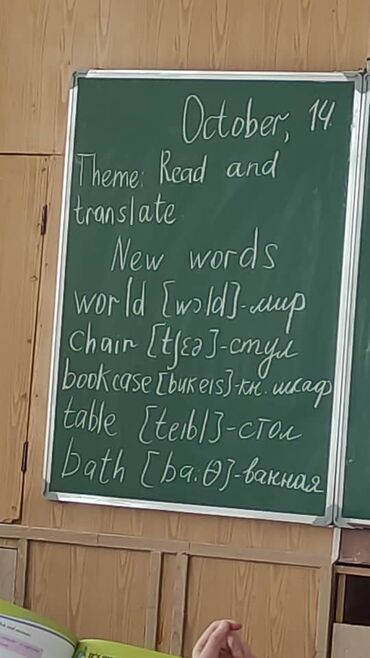 October, 14.
Theme: Read and
translate
New words
world [wɔld]-мир
chair [tʃɛə]-стул
bookcase [bukeis]-кн. шкаф
table [teɪbl]-стол
bath [ba:θ]-ванная